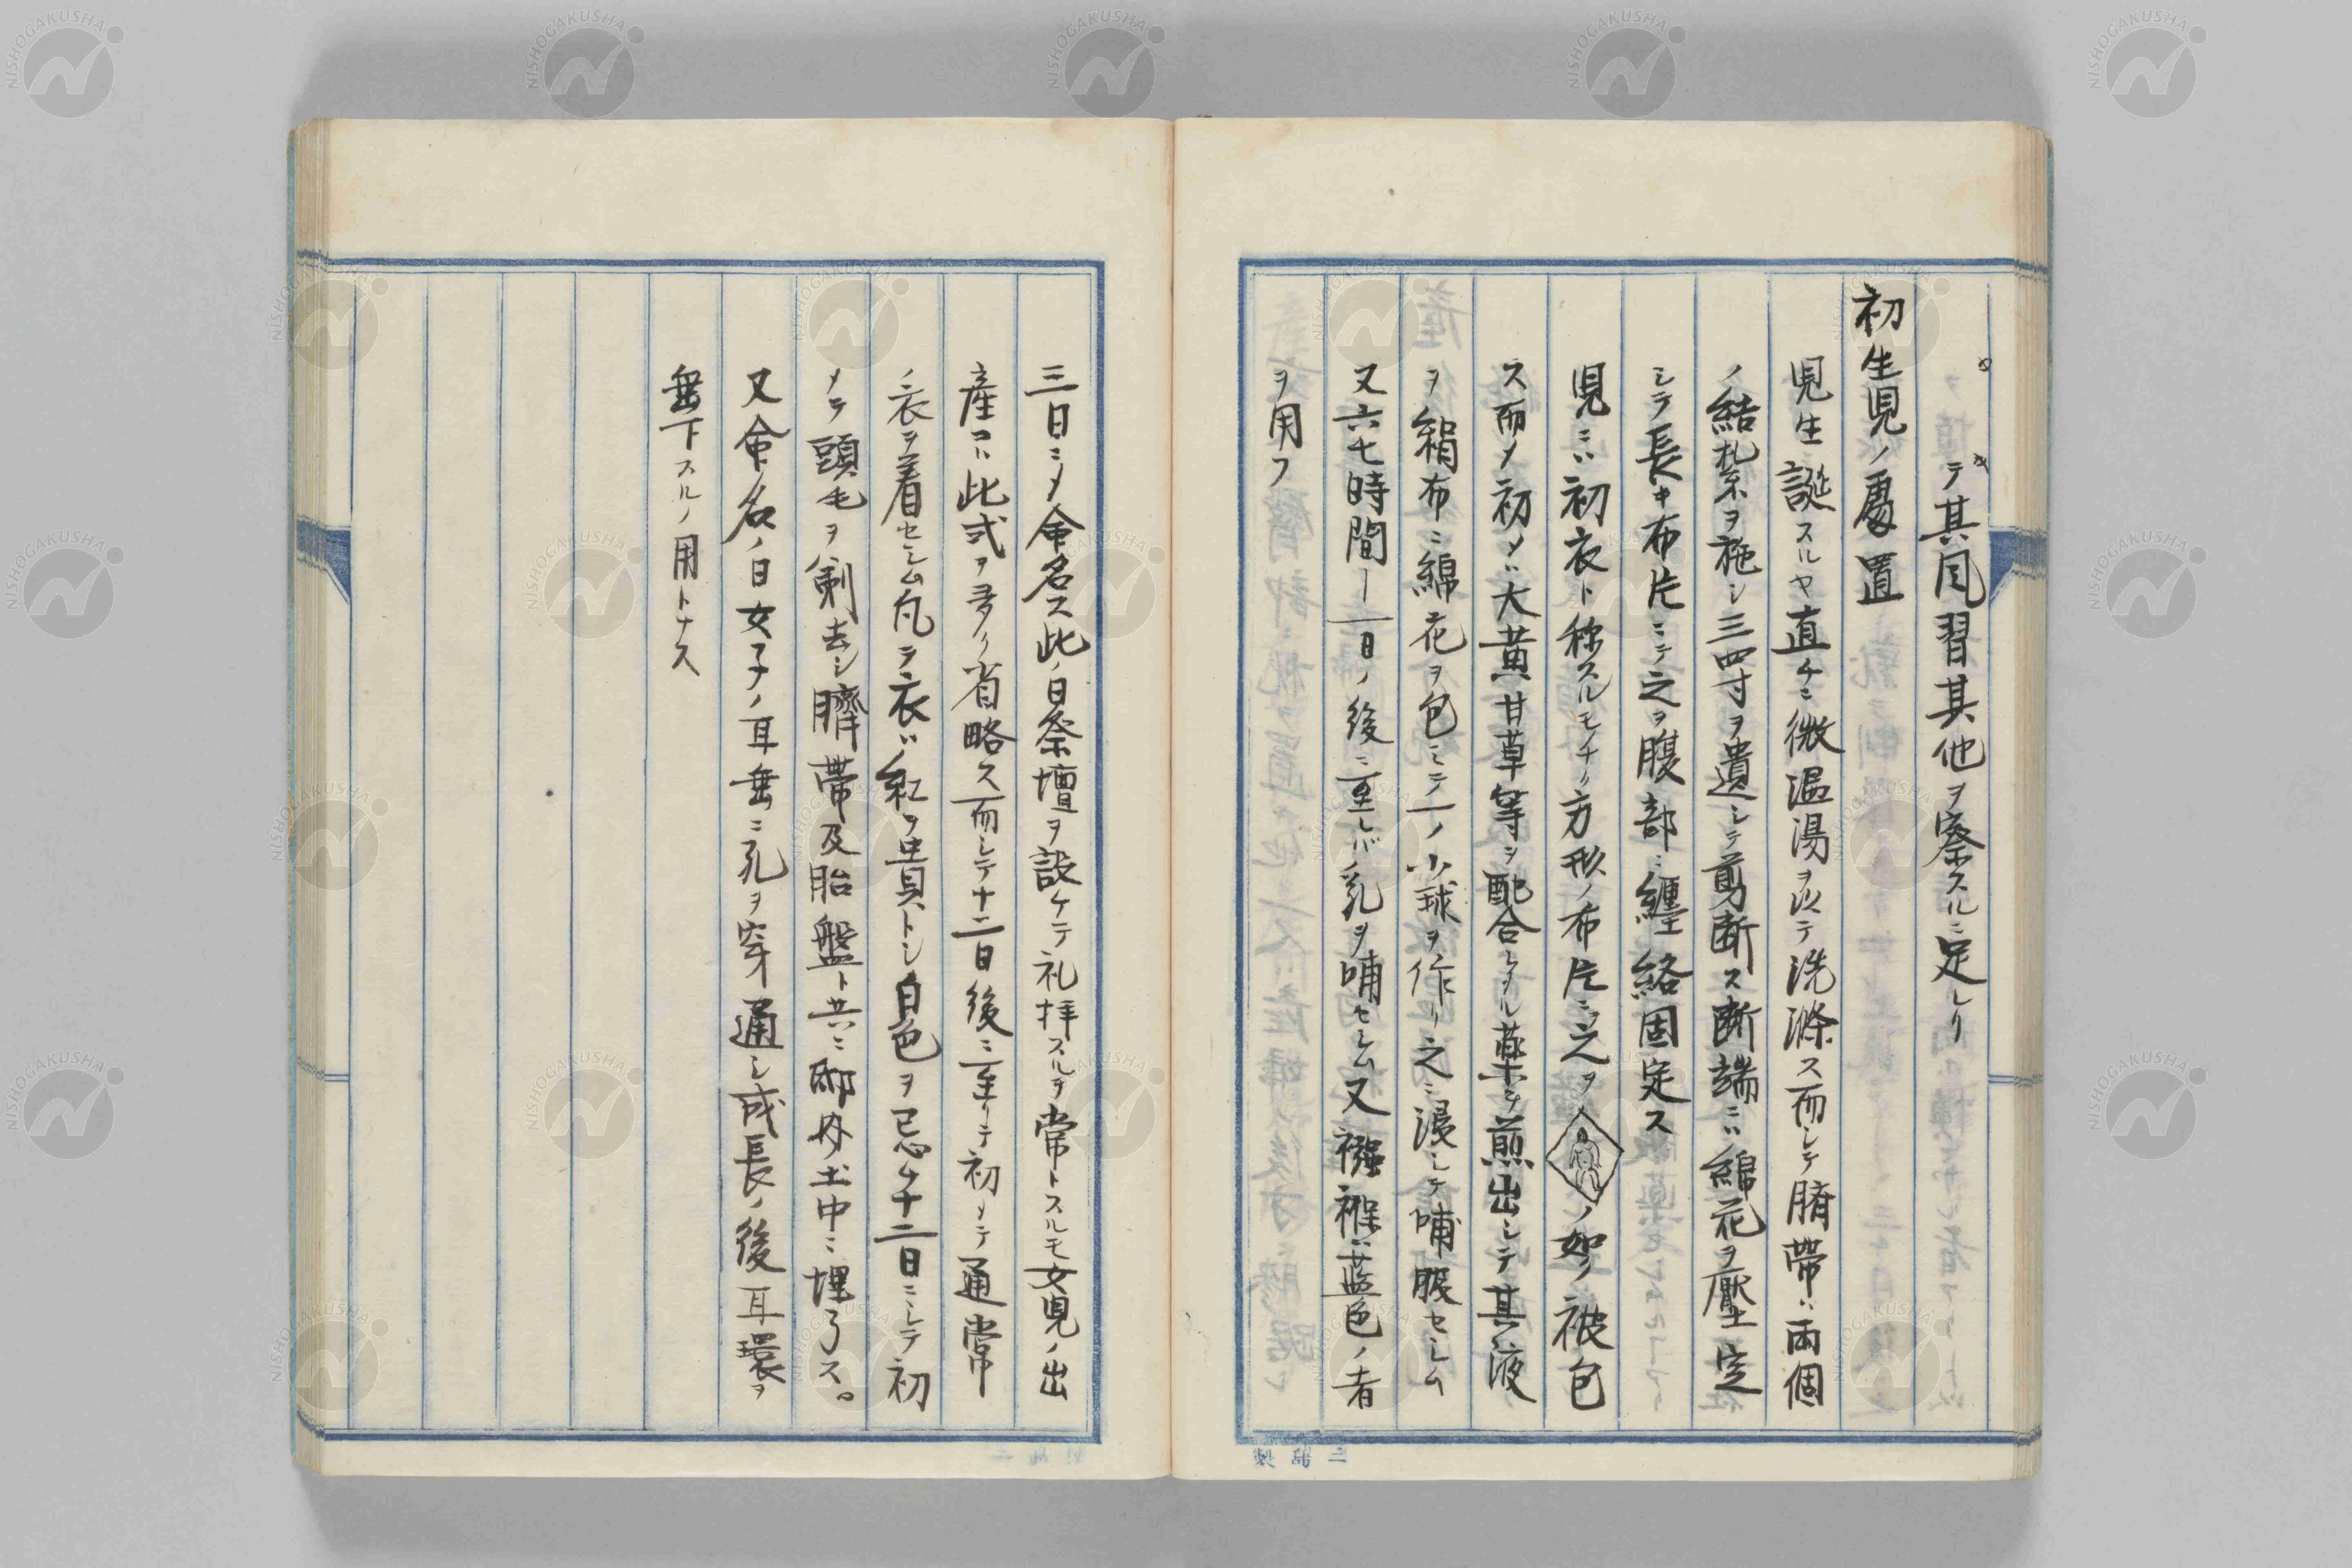 テ其風習其他ヲ察スルニ足レリ
初生児ノ處置
児生誕スルヤ直チニ微温湯ヲ以テ洗滌ス而シテ臍帯ハ両個
ノ結紮ヲ施シ三四寸ヲ遺シテ剪断ス断端ニハ綿花ヲ壓定
シテ長キ布片ニテ之ヲ腹部ニ纏絡固定ス
児ニハ初衣ト称スルモノチノ方形ノ布片ニ之ヲノ如ク被包
ス而メ初メハ大黄甘草等ヲ配合シタル薬ヲ煎出シテ其液
ヲ絹布ニ綿花ヲ包ミテ一ノ小球ヲ作リ之ニ浸シテ哺服セシム
又六七時間ー一日ノ後ニ至レバ乳ヲ哺セシム又襁褓ハ藍色ノ者
ヲ用フ
三日ニメ命名ス此ノ日祭壇ヲ設ケテ礼拝スルヲ常トスルモ女児ノ出
産ニハ此式ヲ多ク省略ス而シテ十二日後ニ至リテ初メテ通常
ノ衣ヲ着セシム凡テ衣ハ紅ヲ貴トシ白色ヲ忌ム十二日ニシテ初
メテ頭毛ヲ剃去シ臍帯及胎盤ト共ニ邸内土中ニ埋了ス。
又命名ノ日女子ノ耳垂ニ孔ヲ穿通シ成長ノ後耳環ヲ
垂下スルノ用トナス
三島製
NISHOGAKUSHA